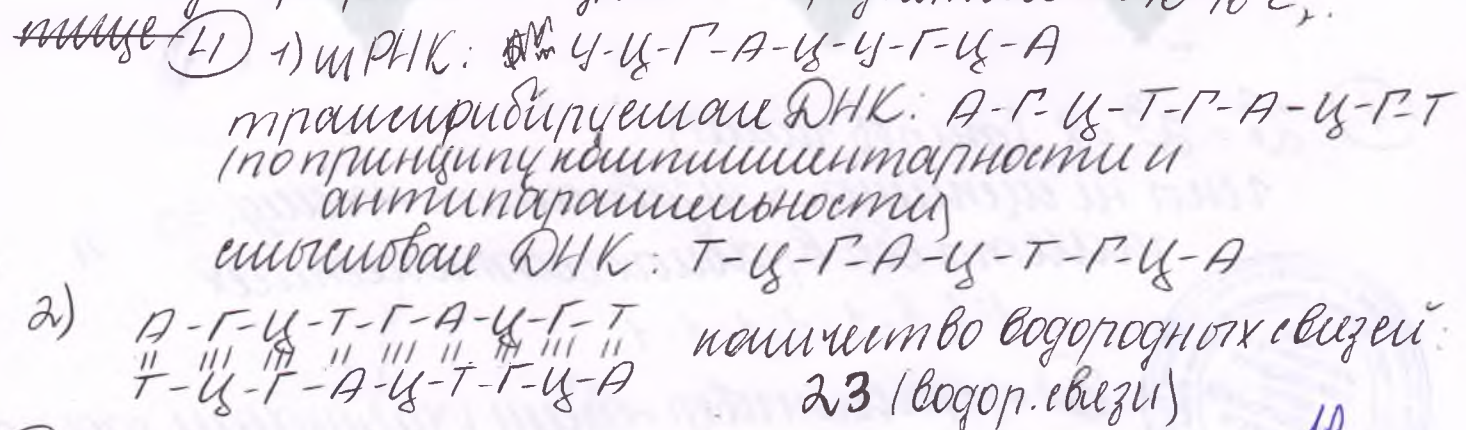 пище 4) 1) иРНК: У-Ц-Г-А-Ц-У-Г-Ц-А
транскрибируемая ДНК: А-Г-Ц-Т-Г-А-Ц-Г-Т
(по принципу комплиментарности и
антипараллельности)
смысловая ДНК: Т-Ц-Г-А-Ц-Т-Г-Ц-А
2) А-Г-Ц-Т-Г-А-Ц-Г-Т количество водородных связей:
Т-Ц-Г-А-Ц-Т-Г-Ц-А 23 (водор. связи)